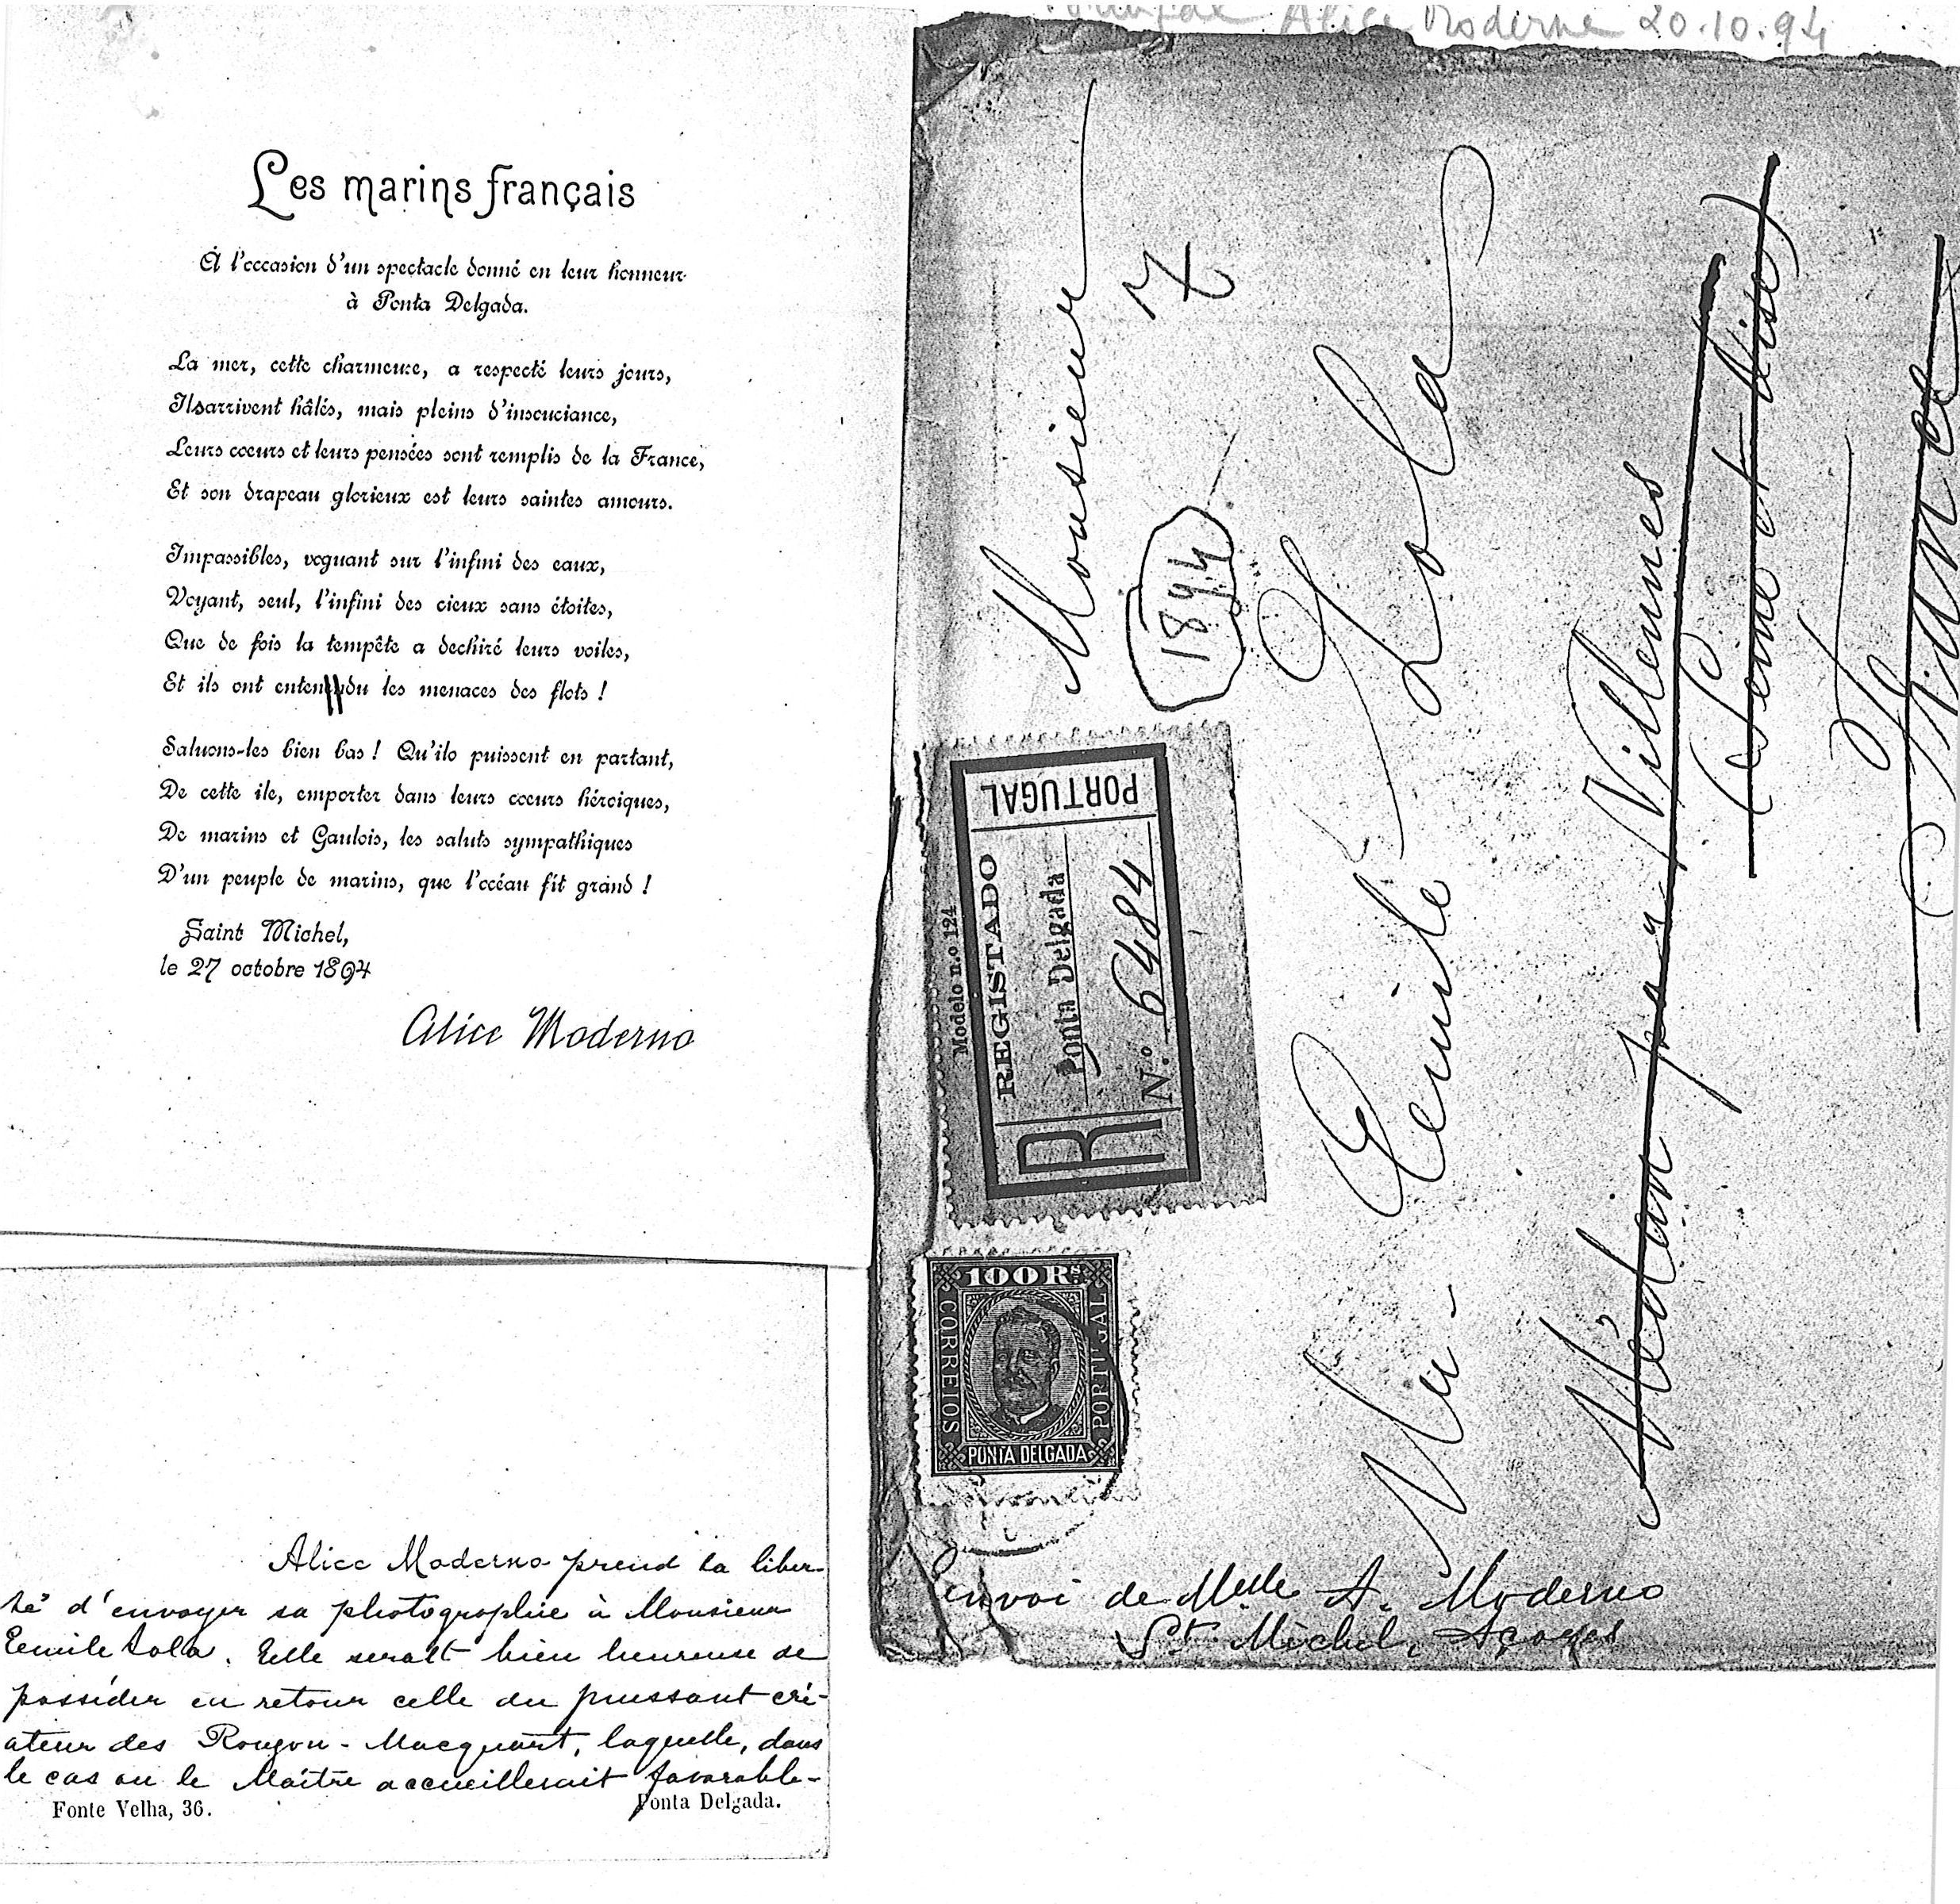 Les marins français
À l'occasion d'un spectacle donné en leur honneur
à Ponta Delgada.
La mer, cette charmeuse, a respecté leurs jours,
Ilsarrivent hâlés, mais pleins d'insouciance,
Leurs coeurs et leurs pensées sont remplis de la France,
Et son drapeau glorieux est leurs saintes amours.
Impassibles, voguant sur l'infini des eaux,
Voyant, seul, l'infini des cieux sans étoites,
Que de fois la tempête a dechiré leurs voiles,
Et ils ont entendu les menaces des flots !
Saluons-les bien bas ! Qu'ilo puissent en partant,
De cette ile, emporter dans leurs coeurs héroiques,
De marins et Gaulois, les saluts sympathiques
D'un peuple de marins, que l'océau fit grand !
Saint Michel,
le 27 octobre 1894
Alice Moderno
Alice Moderno prend la liber-
té d'envoyer sa photographie à Monsieur
Eemile Zola. Elle serait bien heureuse de
posséder en retour celle du puissant cré-
ateur des Rougon-Macquart, laquelle, dans
le cas ou le Maître accueillerait favorable-
Fonte Velha, 36.
Ponta Delgada.
Alice Moderne 20.10.94
Monsieur
1894
Eemile Zola
Médan par Villennes
(Seine et Oise)
France
Modelo n.o 124
REGISTADO
PORTUGAL
R
Ponta Delgada
N.o 6484
100 Rs.
CORREIOS
PORTUGAL
PONTA DELGADA
envoi de Melle A. Moderno
St. Michel, Açores